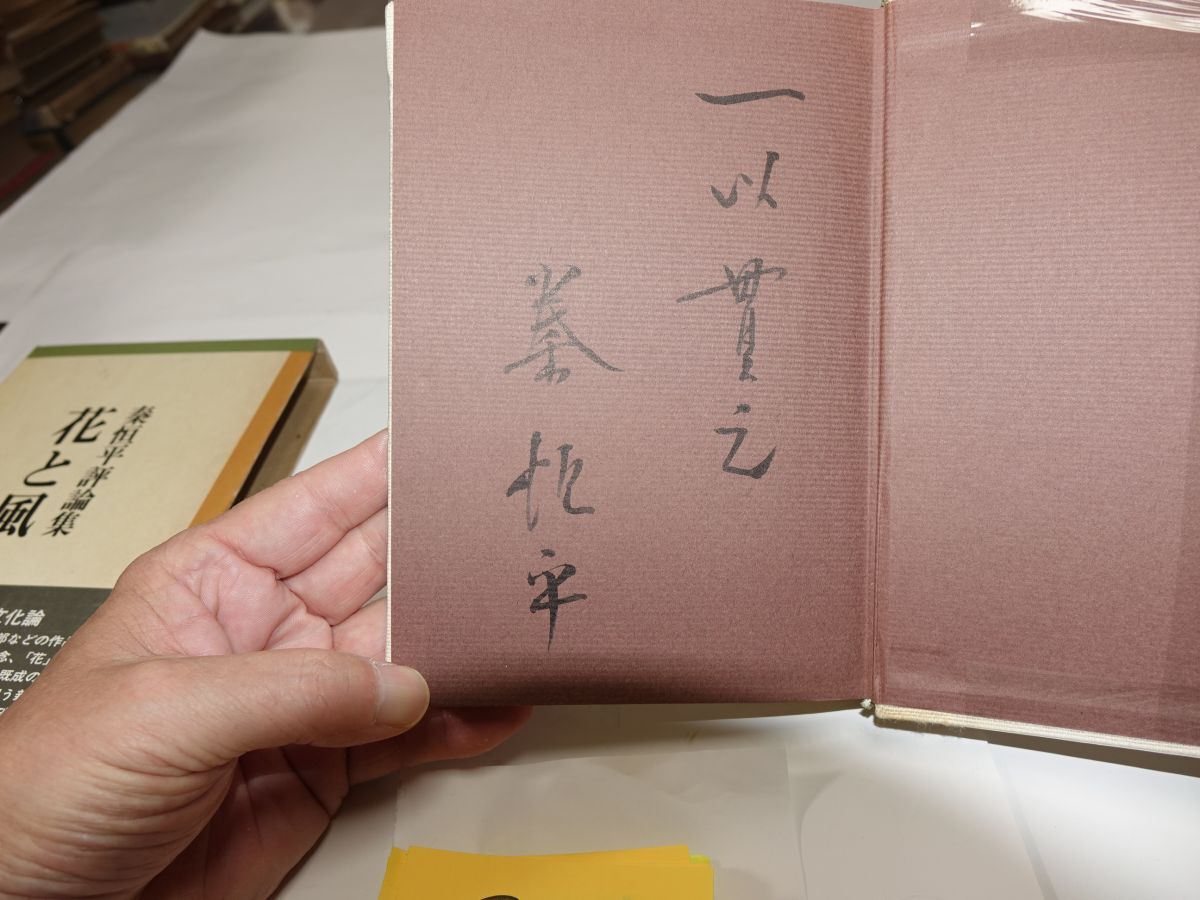 一以貫之
秦恒平
秦恒平評論集
花と風
文化論
郎などの作品
念、「花」
既成の